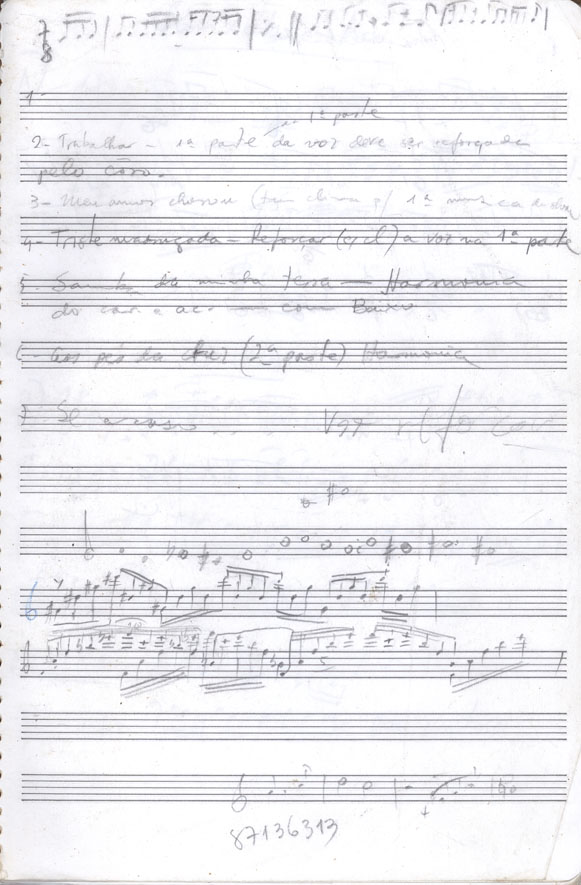 7
8
1-
1ª parte
2- Trabalhar - 1ª parte da voz deve ser reforçada
pelo côro.
3- Meu amor chorou ( 1ª música
4- Triste madrugada - Reforçar a voz na 1ª parte
5- Samba da minha terra - Harmonia
do com Baixo
6- aos pés da Cruz (2ª parte) Harmonia
7 Se acaso Voz
87136313